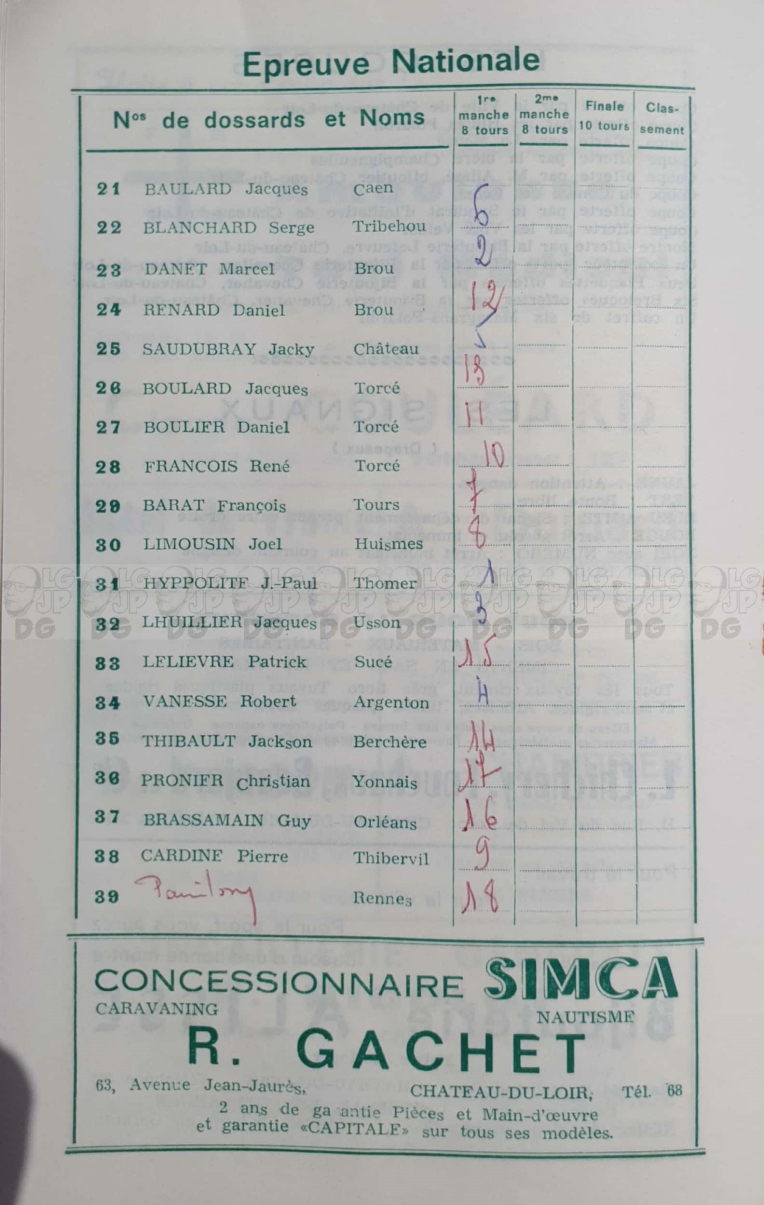 Epreuve Nationale
Nos de dossards et Noms 1re manche 8 tours 2me manche 8 tours Finale 10 tours Clas-sement
21 BAULARD Jacques Caen
22 BLANCHARD Serge Tribehou 6
23 DANET Marcel Brou 2
24 RENARD Daniel Brou 12
25 SAUDUBRAY Jacky Château 5
26 BOULARD Jacques Torcé 13
27 BOULIER Daniel Torcé 11
28 FRANCOIS René Torcé 10
29 BARAT François Tours 7
30 LIMOUSIN Joel Huismes 8
31 HYPPOLITE J.-Paul Thomer 1
32 LHUILLIER Jacques Usson 3
33 LELIEVRE Patrick Sucé 15
34 VANESSE Robert Argenton 4
35 THIBAULT Jackson Berchère 14
36 PRONIER Christian Yonnais 17
37 BRASSAMAIN Guy Orléans 16
38 CARDINE Pierre Thibervil 9
39 Rennes 18
CONCESSIONNAIRE SIMCA
CARAVANING NAUTISME
R. GACHET
63, Avenue Jean-Jaurès, CHATEAU-DU-LOIR, Tél. 68
2 ans de ga antie Pièces et Main-d'œuvre
et garantie «CAPITALE» sur tous ses modèles.